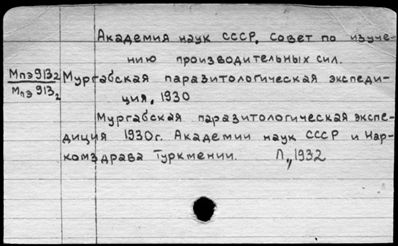 Академия наук СССР. Совет по изуче-
нию производительных сил.
Мпэ913₂ Мургабская паразитологическая экспеди-
Мпэ913₂ ция, 1930
Мургабская паразитологическая экспе-
диция 1930г. Академии наук СССР и Нар-
комздрава Туркмении. Л., 1932